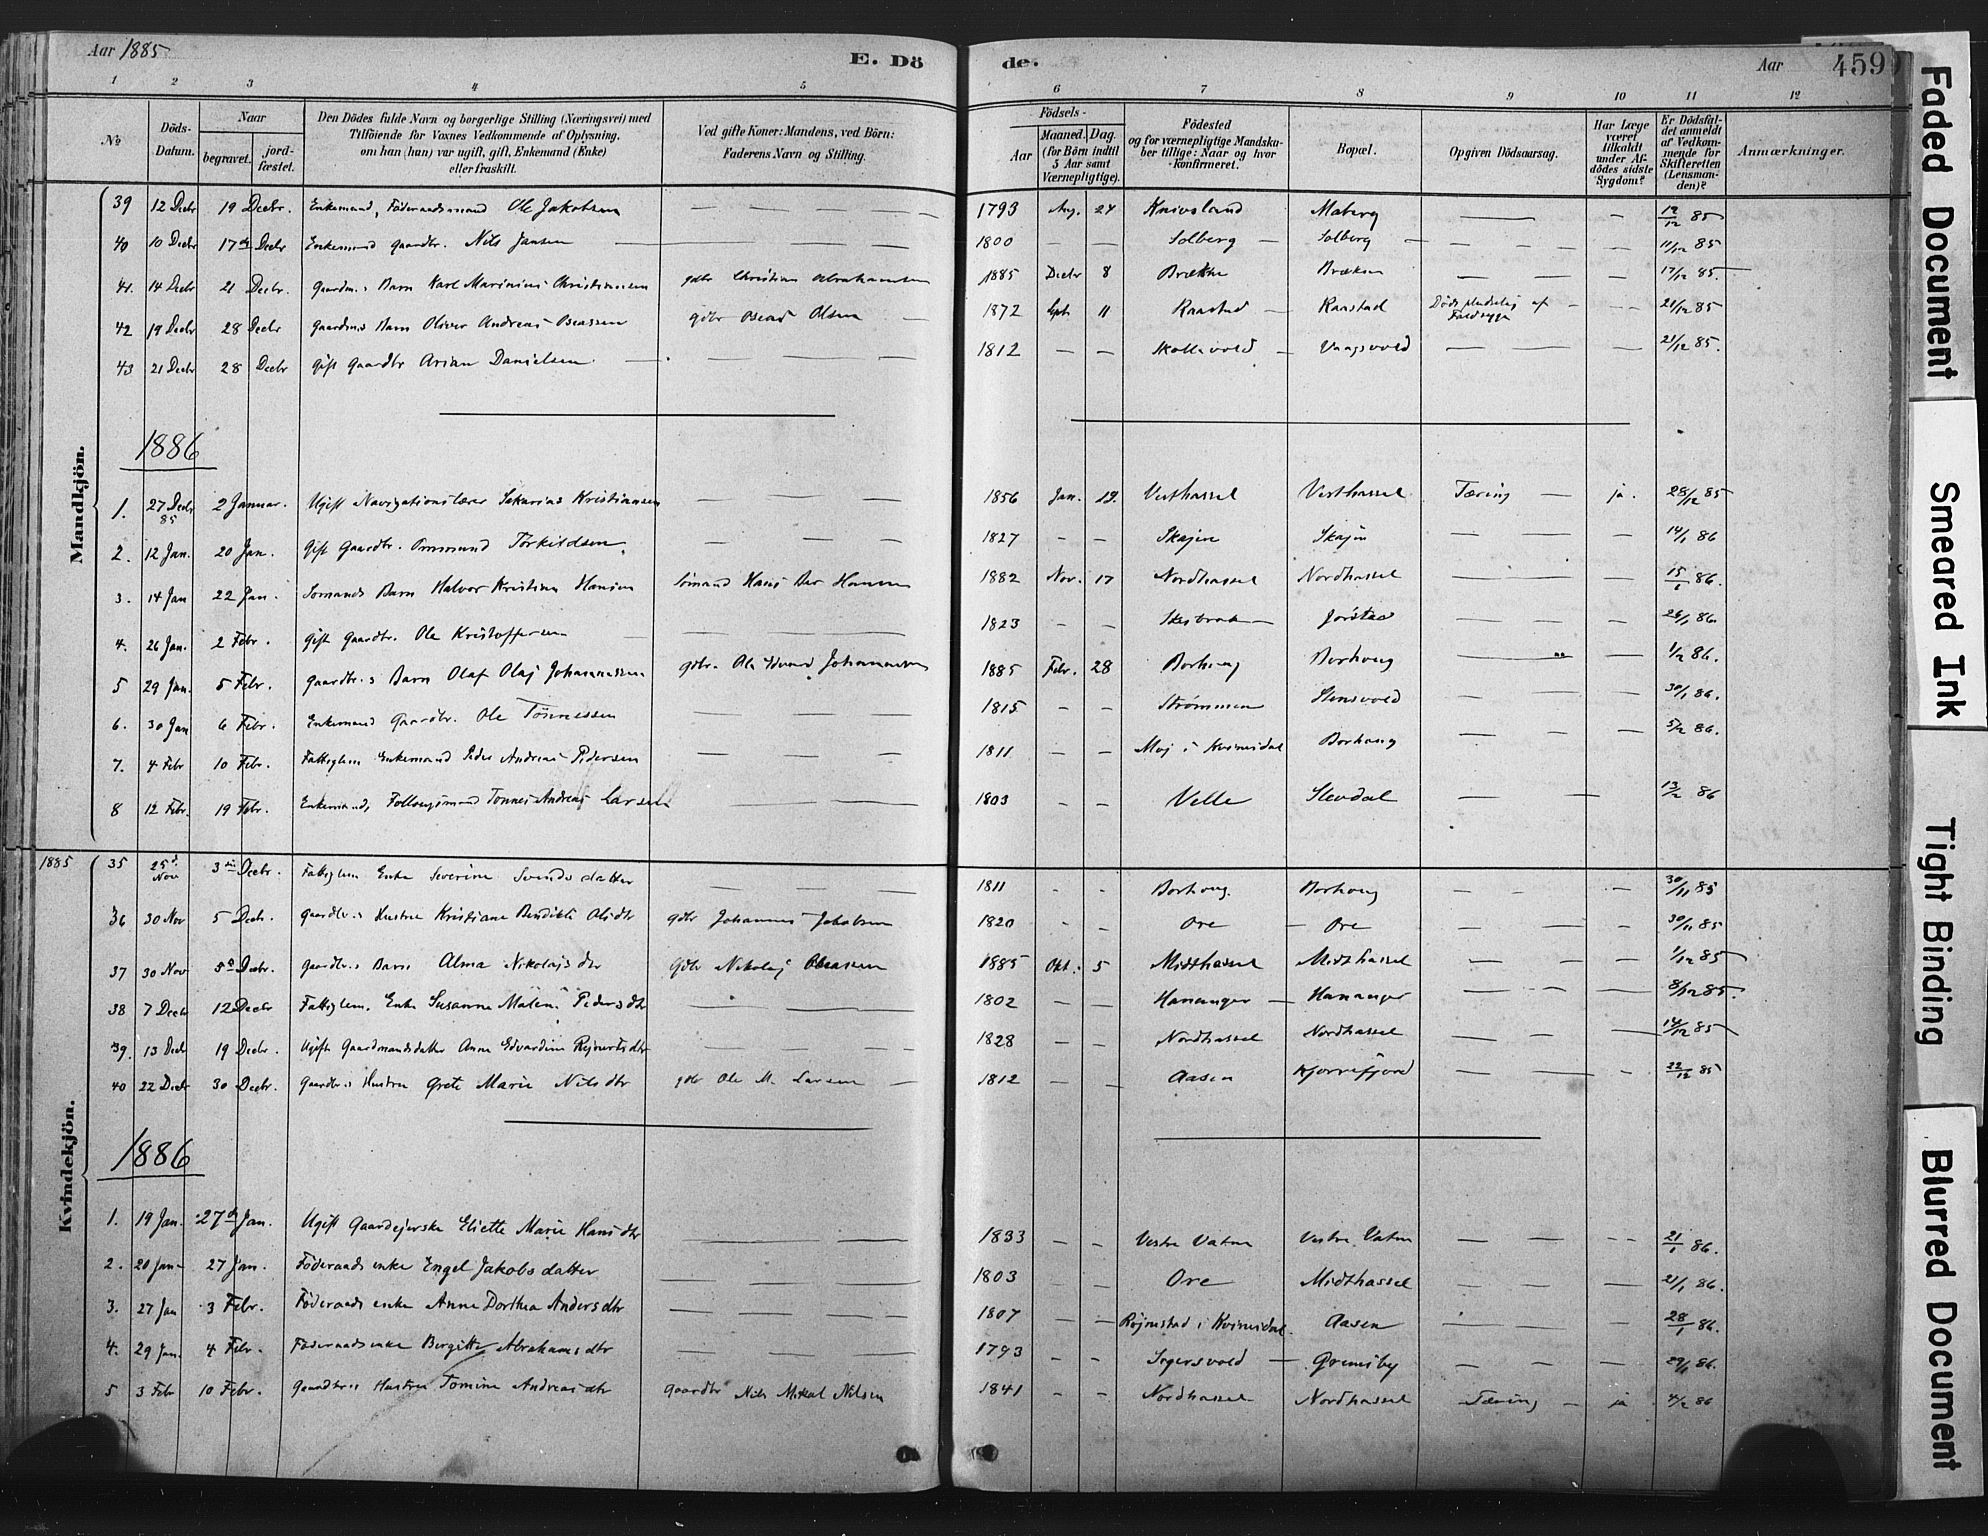 Aar 1885
E. Dö
de.
Aar
459
1 2 3 4 5 6 7 8 9 10 11 12
No
Döds-Datum.
Naar
begravet.
jord-fæstet.
Den Dödes fulde Navn og borgerlige Stilling (Næringsvei) med
Tilföiende for Voxnes Vedkommende af Oplysning,
om han (hun) var ugift, gift, Enkemand (Enke)
eller fraskilt.
Ved gifte Koner: Mandens, ved Börn:
Faderens Navn og Stilling.
Födsels-
Aar
Maaned. Dag.
(for Börn indtil
5 Aar samt
Værnepligtige).
Födested
og for værnepligtige Mandska-
ber tillige: Naar og hvor
konfirmeret.
Bopæl.
Opgiven Dödsaarsag.
Har Læge
været
tilkaldt
under Af-
dödes sidste
Sygdom?
Er Dödsfal-
det anmeldt
af Vedkom-
mende for
Skifteretten
(Lensman-
den)?
Anmærkninger.
Mandkjön.
39 12 Decbr 19 Decbr. Enkemand, Föderaadsmand Ole Jakobsen — — — 1793 Aug. 24 Knivsland Maberg — — 19/12 85
40 10 Decbr 17de Decbr Enkemand gaardbr. Nils Jansen — — — 1800 — — Solberg — Solberg — — — 11/12 85
41. 14 Decbr 21 Decbr. gaardm.s Barn Karl Marinius Christiansen gdbr Christian Abrahamsen 1885 Decbr 8 Brække Brække — — — 17/12 85.
42 19 Decbr 28 Decbr gaardms Barn Oliver Andreas Oseassen gdbr Oseas Olsen — 1872 Sept 11 Raastad — Raastad Döds pludselig af — — 21/12 85
43 21 Decbr 28 Decbr Gift gaardbr Arian Danielsen. — — — 1812 — — Skollevold — Vaagsvold — — — 21/12 85.
1886
1. 27 Decbr 85 2 Januar. Ugift Navigationslærer Sakarias Kristiansen — — 1856 Jan. 19. Vesthassel Vesthassel Tæring — ja. 28/12 85
2. 12 Jan. 20 Jan. Gift Gaardbr. Ommund Törkildsen — — — 1827 — — Skajen Skajen — — — 14/1 86
3. 14 Jan 22 Jan. Sömands Barn Halvor Kristian Hansen Sömand Hans 1882 Nov. 17 Nordhassel Nordhassel — — 15/1 86.
4. 26 Jan. 2 Febr. Gift Gaardbr. Ole Kristoffersen — — 1823 — — Jörstad — — 26/1 86.
5 29 Jan. 5 Febr. Gaardbr.s Barn Olaf Olaj Johannessen gdbr. Ole Edvard Johannessen 1885 Febr. 28 Borhaug Borhaug — — 1/2 86.
6. 30 Jan 6 Febr. Enkemand Gaardbr. Ole Tönnessen — — — 1815 — — Strømmen Stensvold — — — 30/1 86.
7. 4 Febr 10 Febr. Fattiglem Enkemand Peder Andreas Pedersen — — — 1811 — — Moj i Kvinesdal Borhaug — — — 5/2 86.
8 12 Febr. 19 Febr. Enkemand, Tönnes Andreas Larsen — — — 1803 — — Velle Stevdal — — 13/2 86
Kvindekjön.
1885 35 25de Nov 3die Decbr. Fattiglem Enke Severine Svendsdatter — — — 1811 — — Borhaug. Borhaug — — — 30/11 85
36 30 Nov 5 Decbr. Gaardbr.s Hustru Kristiane Bendikte Olsdtr gdbr Johannes Jakobsen 1820 — Ore — Ore — — — 30/11 85
37 30 Nov 5te Decbr. gaardbr.s Barn Alma Nikolajsdtr Gdbr Nikolaj Oseasen 1885 Okt. 5 Midthassel Midthassel — — — 1/12 85
38 7 Decbr 12 Decbr Fattiglem. Enke Susanne Malene Pedersdtr — — 1802 — — Hananger — Hananger — — — 8/12 85.
39. 13 Decbr 19 Decbr. Ugift Gaardmandsdatter Anne Edvardine Rejnertsdtr — — — 1828 — — Nordhassel Nordhassel — — — 14/12 85
40 22 Decbr 30 Decbr. Gaardbr.s Hustru Grete Marie Nilsdtr gdbr Ole M. Larsen — 1812 — — Aasen Kjörrefjord — — — 22/12 85
1886
1. 19 Jan. 27de Jan. Ugift Gaardejerske Eliette Marie Hansdtr — — 1833 — — Vestre Vatne Vestre Vatne — — — 21/1 86.
2. 20 Jan 27 Jan. Föderaadsenke Engel Jakobsdatter — — — 1803 — — Ore — Midthassel — — — 21/1 86.
3. 27 Jan 3 Febr. Föderaadsenke Anne Dorthea Andersdtr — — — 1807 — — Röjnestad i Kvinesdal. Aasen — — 28/1 86.
4. 29 Jan. 4 Febr. Föderaadsenke Bergitte Abrahamsdtr — — — 1793 — — Segersvold — Grimsby — — — 29/1 86.
5 3 Febr 10 Febr. Gaardbr.s Hustru Tomine Andreasdtr gaardbr Nils Mikal Nilsen 1841 — — Nordhassel Nordhassel Tæring — ja 4/2 86
Faded Document
Smeared Ink
Tight Binding
Blurred Document